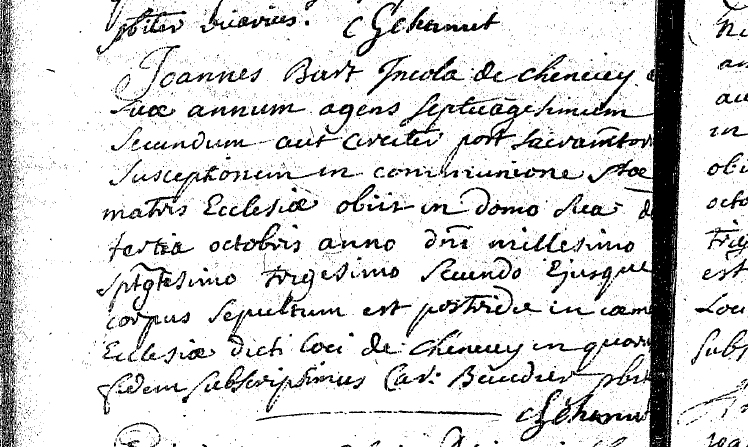 pbiter vicarius. C Gehannet
Joannes Bart Incola de cheneuey
suæ annum agens septuagesimum
secundum aut circiter post sacram̃tor
susceptionem in communione stæ
matris Ecclesiæ obiit in domo sua d
tertia octobris anno dn̄i millesimo
sptgtesimo trigesimo secundo Ejusque
corpus sepultum est postridie in cœm
Ecclesiæ dicti loci de cheneuey in quor
fidem subscripsimus Car: pbit
in
obi
octo
trig
est
Loci
subs